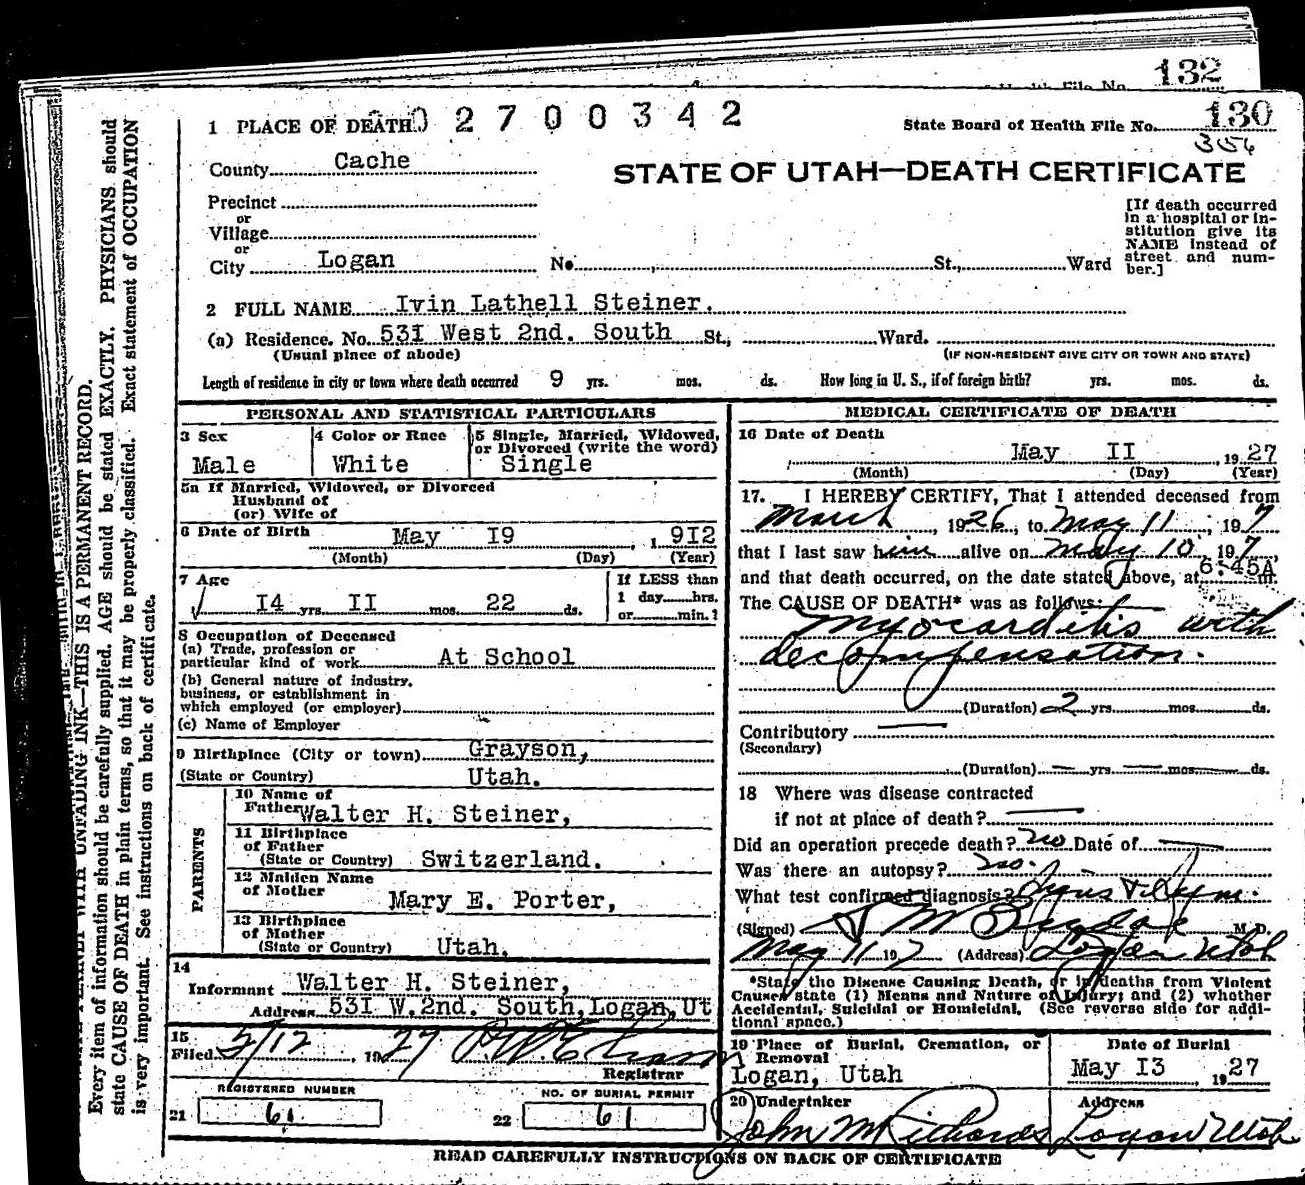 132
1 PLACE OF DEATH
02700342
State Board of Health File No. 130
356
County Cache
STATE OF UTAH—DEATH CERTIFICATE
Precinct
or
Village
or
City Logan No. St., Ward
[If death occurred
in a hospital or in-
stitution give its
NAME instead of
street and num-
ber.]
2 FULL NAME Ivin Lathell Steiner.
(a) Residence. No. 53I West 2nd. South St., Ward.
(Usual place of abode) (IF NON-RESIDENT GIVE CITY OR TOWN AND STATE)
Length of residence in city or town where death occurred 9 yrs. mos. ds. How long in U. S., if of foreign birth? yrs. mos. ds.
PERSONAL AND STATISTICAL PARTICULARS
3 Sex
Male
4 Color or Race
White
5 Single, Married, Widowed,
or Divorced (write the word)
Single
5a If Married, Widowed, or Divorced
Husband of
(or) Wife of
6 Date of Birth May I9 , 19I2
(Month) (Day) (Year)
7 Age
I4 yrs. II mos. 22 ds.
If LESS than
1 day hrs.
or min.?
8 Occupation of Deceased
(a) Trade, profession or
particular kind of work At School
(b) General nature of industry,
business, or establishment in
which employed (or employer)
(c) Name of Employer
9 Birthplace (City or town) Grayson,
(State or Country) Utah.
PARENTS
10 Name of
Father Walter H. Steiner,
11 Birthplace
of Father
(State or Country) Switzerland.
12 Maiden Name
of Mother Mary E. Porter,
13 Birthplace
of Mother
(State or Country) Utah.
14
Informant Walter H. Steiner,
Address 53I W.2nd. South, Logan, Ut
15
Filed 5/12, 1927
Registrar
REGISTERED NUMBER
21 61
NO. OF BURIAL PERMIT
22 61
MEDICAL CERTIFICATE OF DEATH
16 Date of Death
May II , 1927
(Month) (Day) (Year)
17. I HEREBY CERTIFY, That I attended deceased from
March, 1926, to May 11, 197
that I last saw him alive on May 10, 197,
and that death occurred, on the date stated above, at 6:45A m.
The CAUSE OF DEATH* was as follows:
Myocarditis with
decompensation.
(Duration) 2 yrs. mos. ds.
Contributory
(Secondary)
(Duration) yrs. mos. ds.
18 Where was disease contracted
if not at place of death?
Did an operation precede death? no Date of
Was there an autopsy? no.
What test confirmed diagnosis? Signs & Sym.
(Signed) M. D.
May 11 197 (Address) Logan Utah
*State the Disease Causing Death, or in deaths from Violent
Causes state (1) Means and Nature of Injury; and (2) whether
Accidental, Suicidal or Homicidal. (See reverse side for addi-
tional space.)
19 Place of Burial, Cremation, or
Removal
Logan, Utah
Date of Burial
May I3 , 1927
20 Undertaker
John M Richards
Address
Logan Utah
READ CAREFULLY INSTRUCTIONS ON BACK OF CERTIFICATE
WITH UNFADING INK—THIS IS A PERMANENT RECORD.
Every item of information should be carefully supplied. AGE should be stated EXACTLY. PHYSICIANS should
state CAUSE OF DEATH in plain terms, so that it may be properly classified. Exact statement of OCCUPATION
is very important. See instructions on back of certificate.